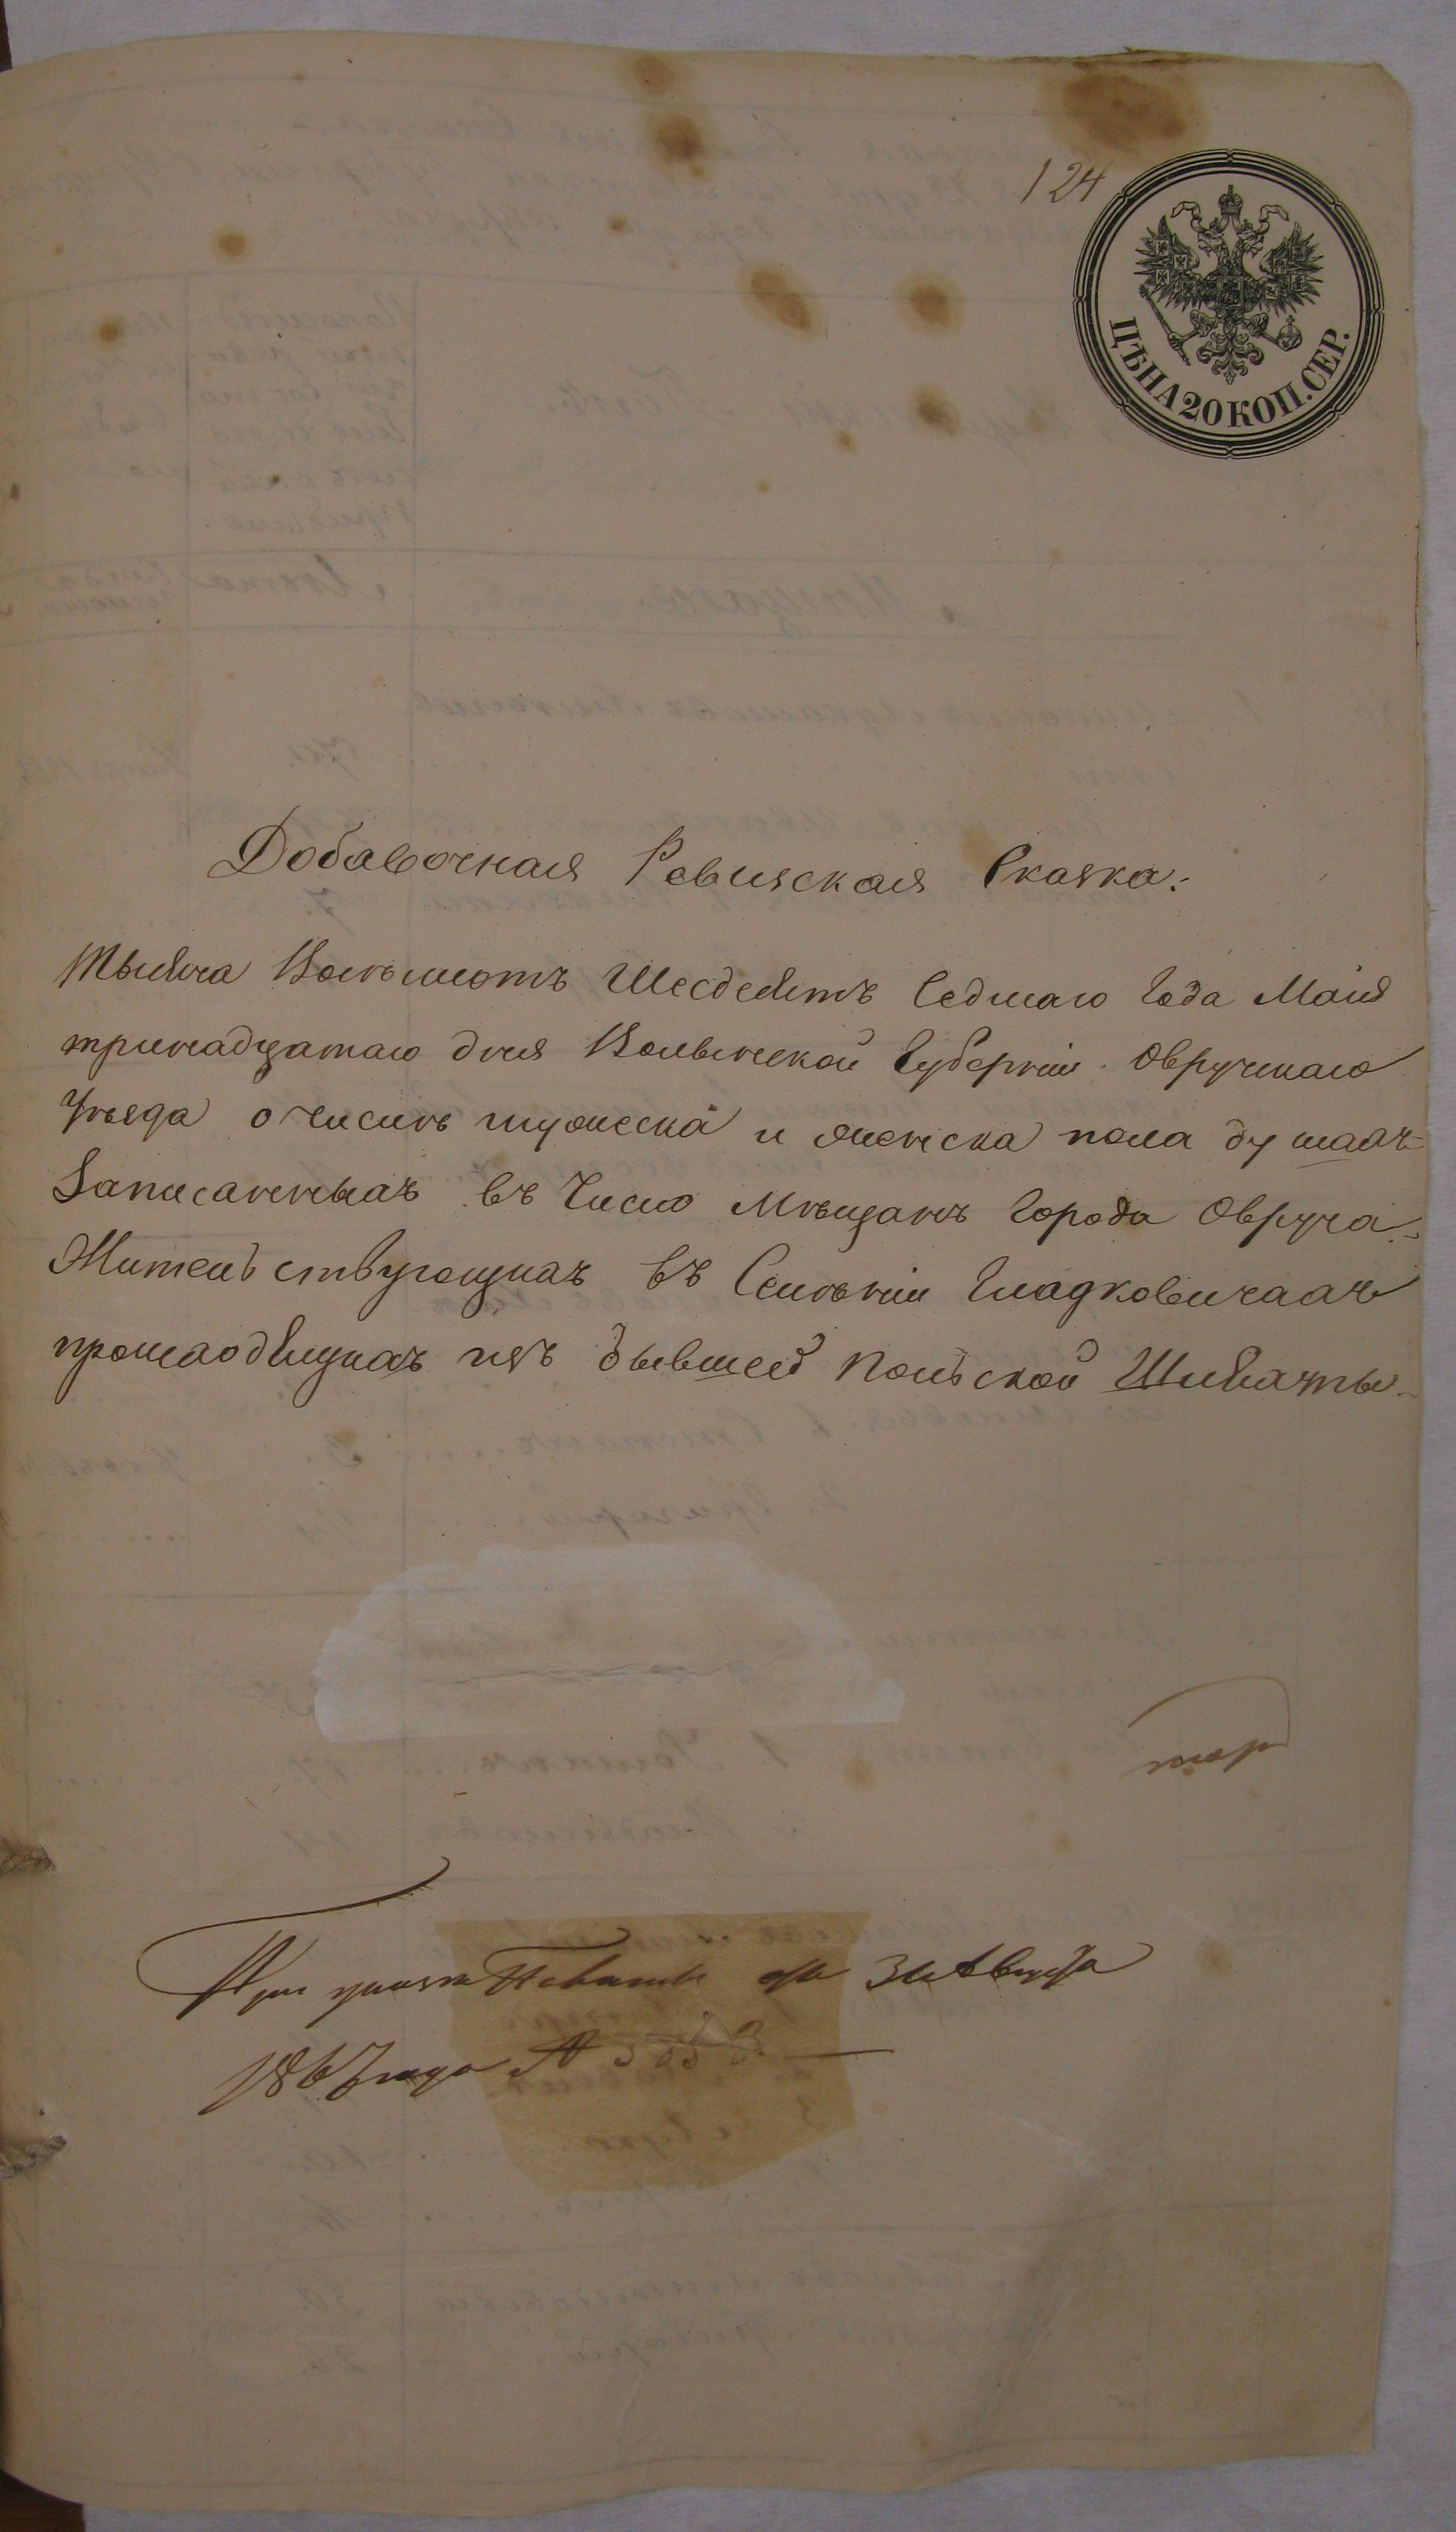 124
ЦѢНА 20 КОП. СЕР.
Добавочная Ревизская Сказка:
Тысяча Восъмсотъ Шесдесятъ Седмаго Года Маія
тринадцатаго дня Волынской Губерніи Овручскаго
Уѣзда о числѣ мужеска и женска пола душахъ
Записанныхъ въ Число Мѣщанъ Города Овруча
Жительствующихъ въ Селѣніи Гладковичахъ
происходящихъ изъ бывшей Польской Шляхты
При указѣ Палаты отъ 31 Августа
1867 года №